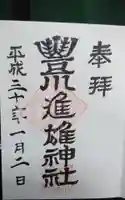 奉拝
豐川進雄神社
平成三十年一月二日